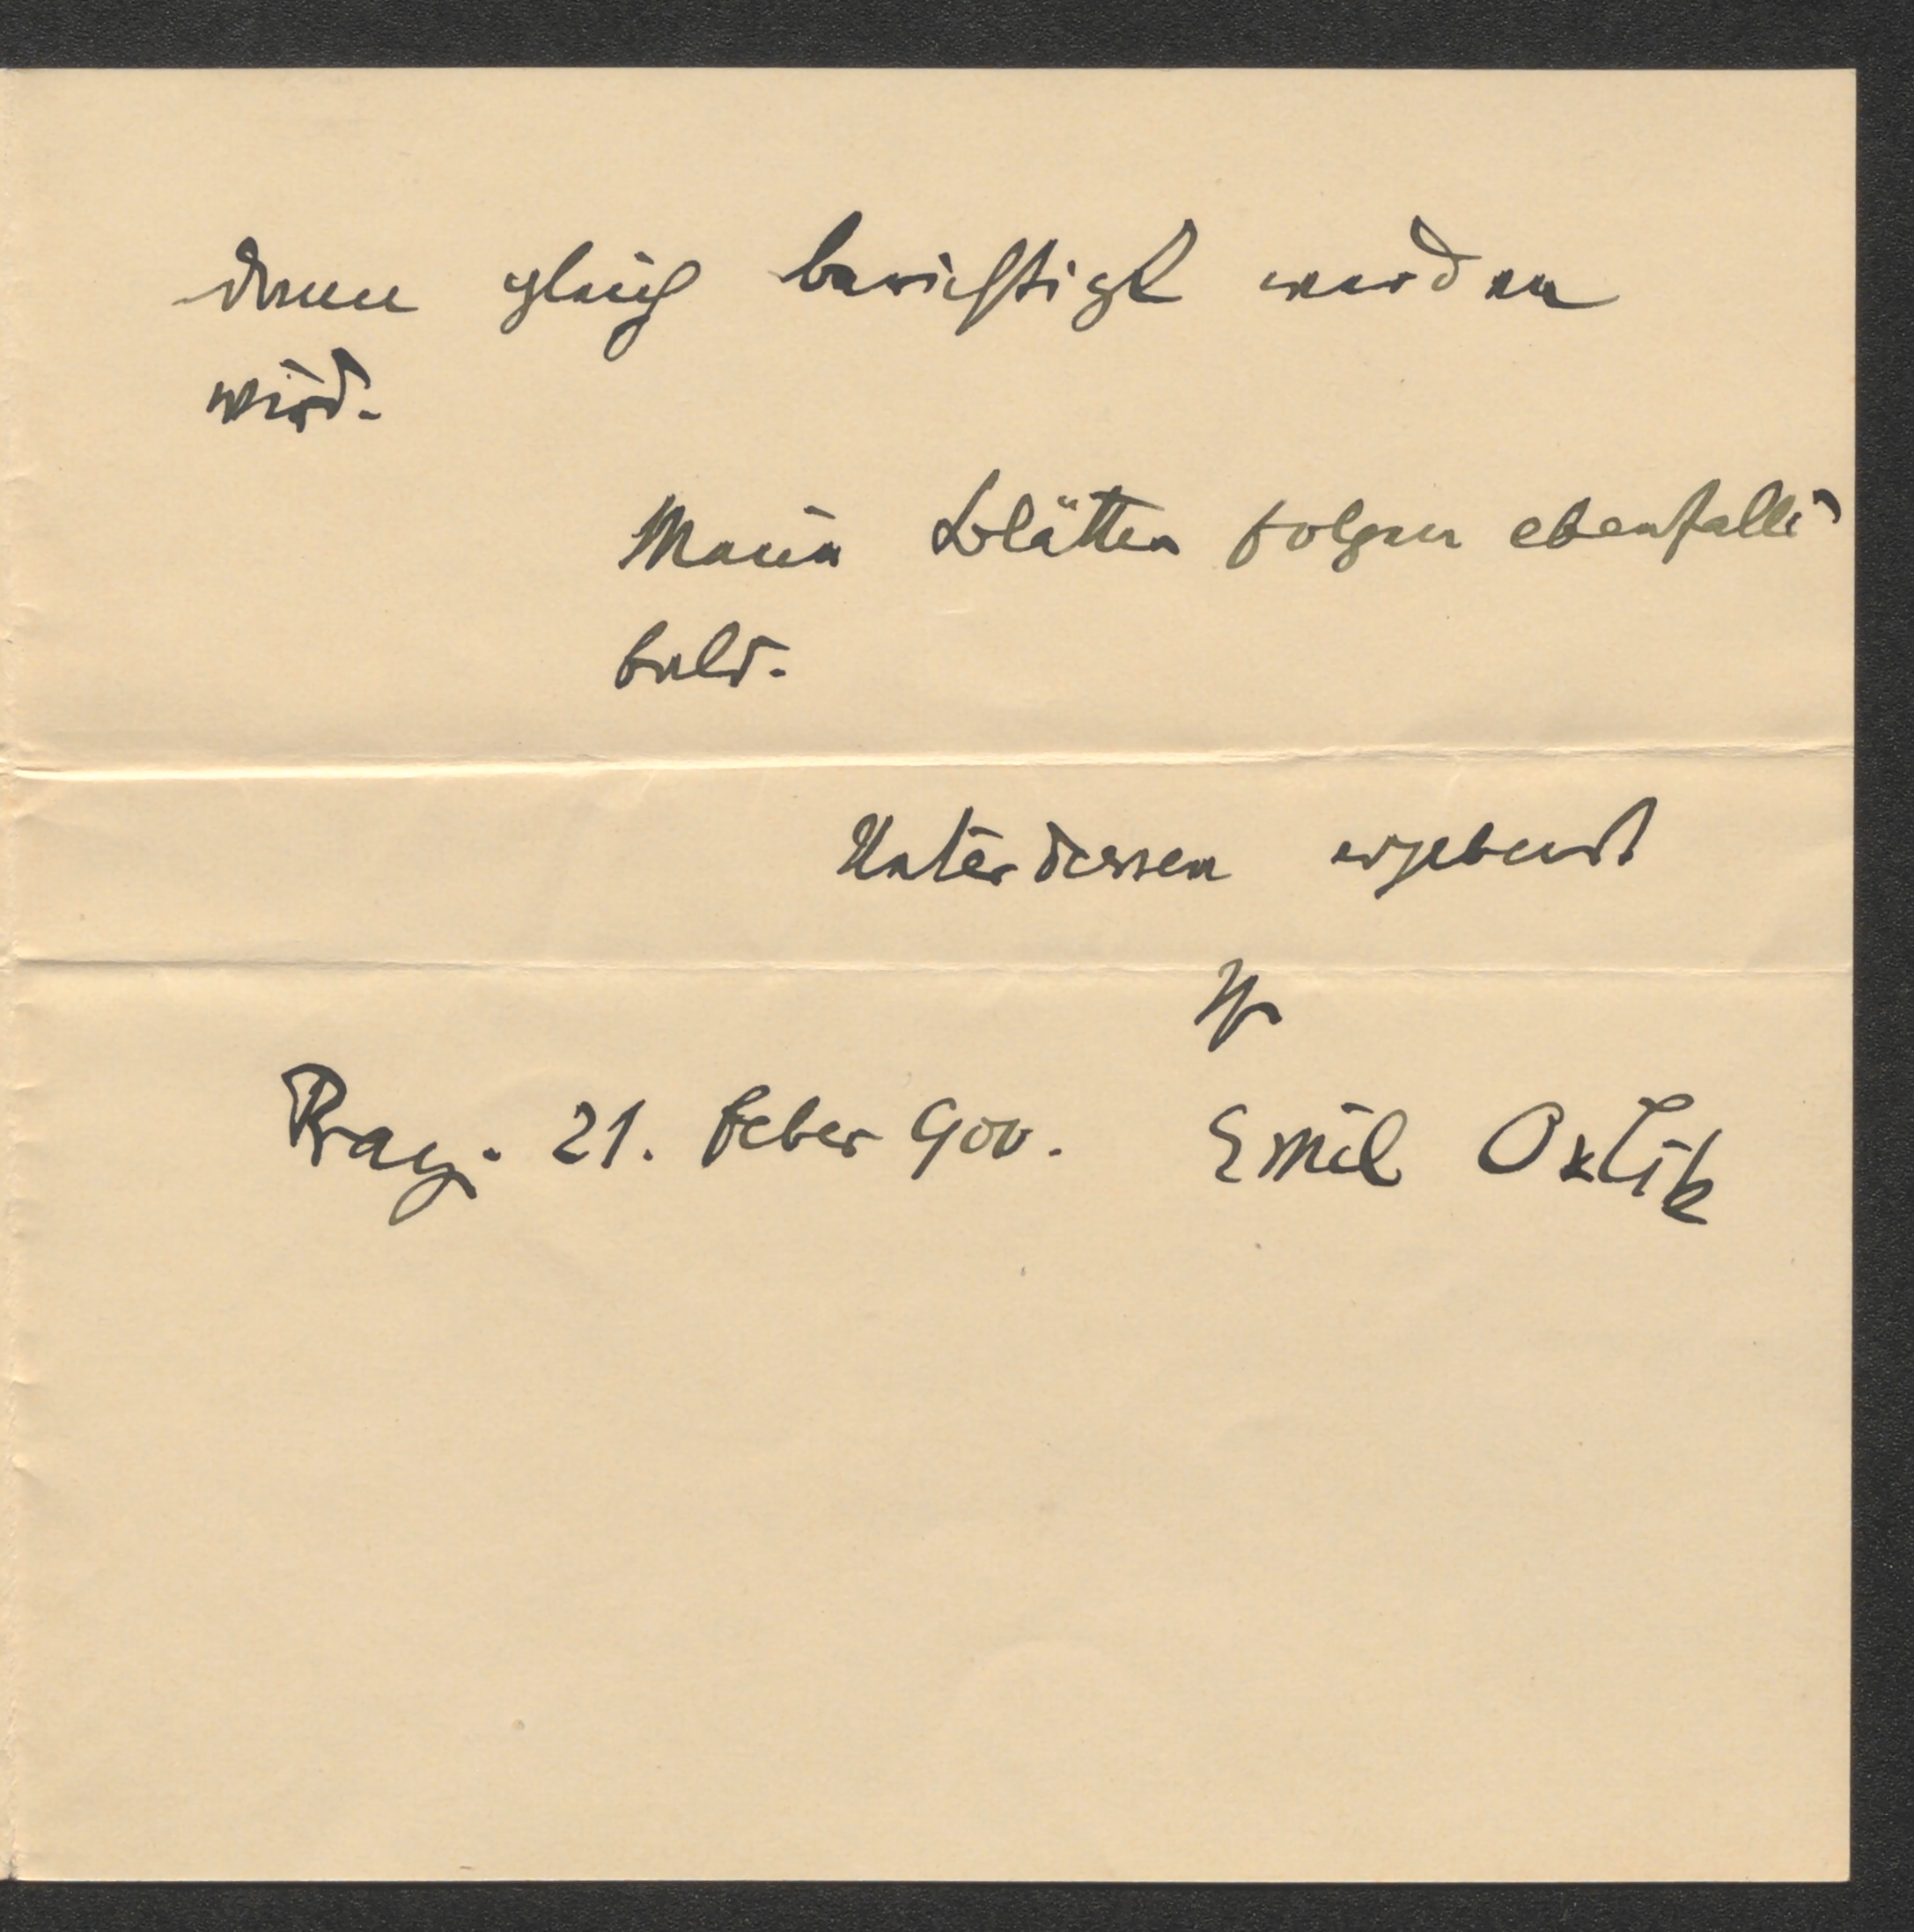 dann gleich berichtigt werden
wird.
Meine Blätter folgen ebenfalls
bald.
Unterdessen ergebenst
Ihr
Prag. 21. Feber 900. Emil Orlik